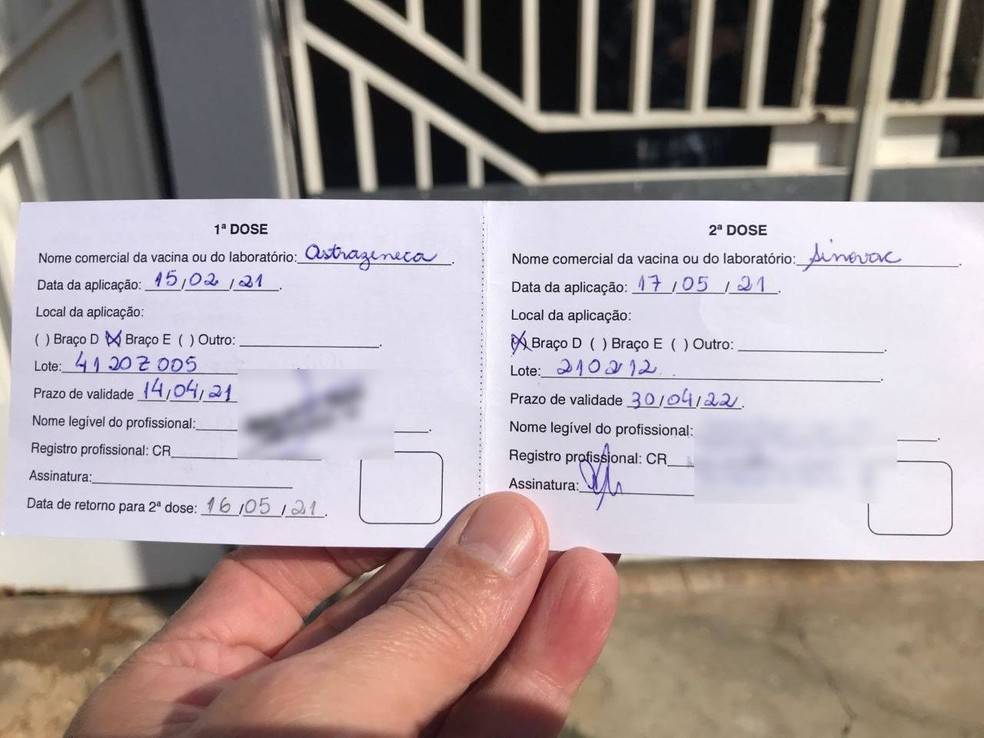 1ª DOSE
Nome comercial da vacina ou do laboratório: Astrazeneca.
Data da aplicação: 15/02/21.
Local da aplicação:
( ) Braço D (X) Braço E ( ) Outro: ____________.
Lote: 4120Z005
Prazo de validade 14/04/21
Nome legível do profissional:
Registro profissional: CR
Assinatura:
Data de retorno para 2ª dose: 16/05/21.
2ª DOSE
Nome comercial da vacina ou do laboratório: Sinovac.
Data da aplicação: 17/05/21.
Local da aplicação:
(X) Braço D ( ) Braço E ( ) Outro: ____________.
Lote: 210212.
Prazo de validade 30/04/22.
Nome legível do profissional:
Registro profissional: CR
Assinatura: